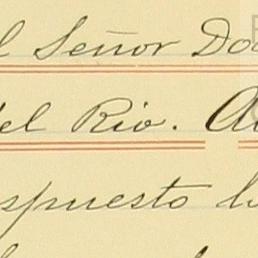 l Señor Do
del Rio. A
spuesto l